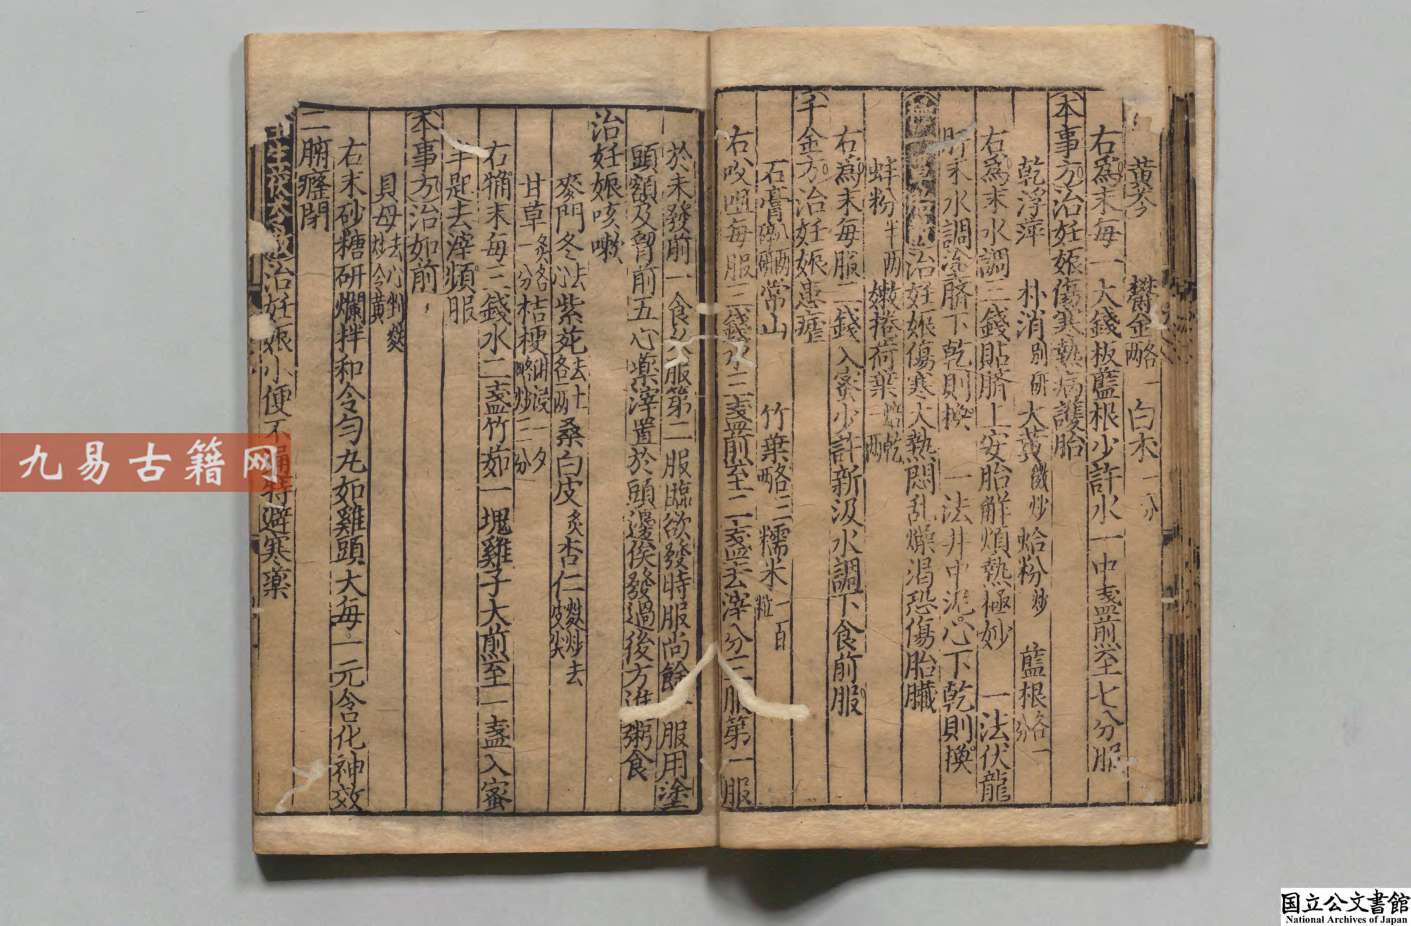 黄芩　鬱金各一兩　白朮一分
右爲末每一大錢板藍根少許水一中盞煎至七分服
本事方治妊娠傷寒熱病護胎
乾浮萍　朴消別研　大黄微炒　蛤粉炒　藍根各一分
右爲末水調三錢貼臍上安胎解煩熱極妙　一法伏龍
肝末水調塗臍下乾則換　一法井中泥心下乾則換
治妊娠傷寒大熱悶乱燥渴恐傷胎臟
蚌粉半兩　嫩捲荷葉焙乾一兩
右爲末每服二錢入蜜少許新汲水調下食前服
千金方治妊娠患瘧
石膏八兩　常山　竹葉各三兩　糯米一百粒
右㕮咀每服三錢水三盞煎至二盞去滓分三服第一服
於未發前一食久服第二服臨欲發時服尚餘一服用塗
頭額及胷前五心藥滓置於頭邊候發過後方進粥食
治妊娠咳嗽
麥門冬去心　紫菀去土各一兩　桑白皮炙　杏仁麸炒去皮尖
甘草炙各一分　桔梗
右㕮末每三錢水二盞竹茹一塊雞子大煎至一盞入蜜
半匙去滓頓服
本事方治如前
貝母去心麩炒令黄
右末砂糖研爛拌和令勻丸如雞頭大每一元含化神效
二腑癃閉
治妊娠小便不通特避寒藥
九易古籍网
国立公文書館
National Archives of Japan